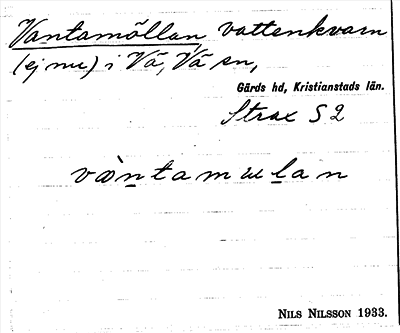 Vantamöllan vattenkvarn
(ej nu) i Vä, Vä sn,
Gärds hd, Kristianstads län.
Strax S 2
NILS NILSSON 1933.